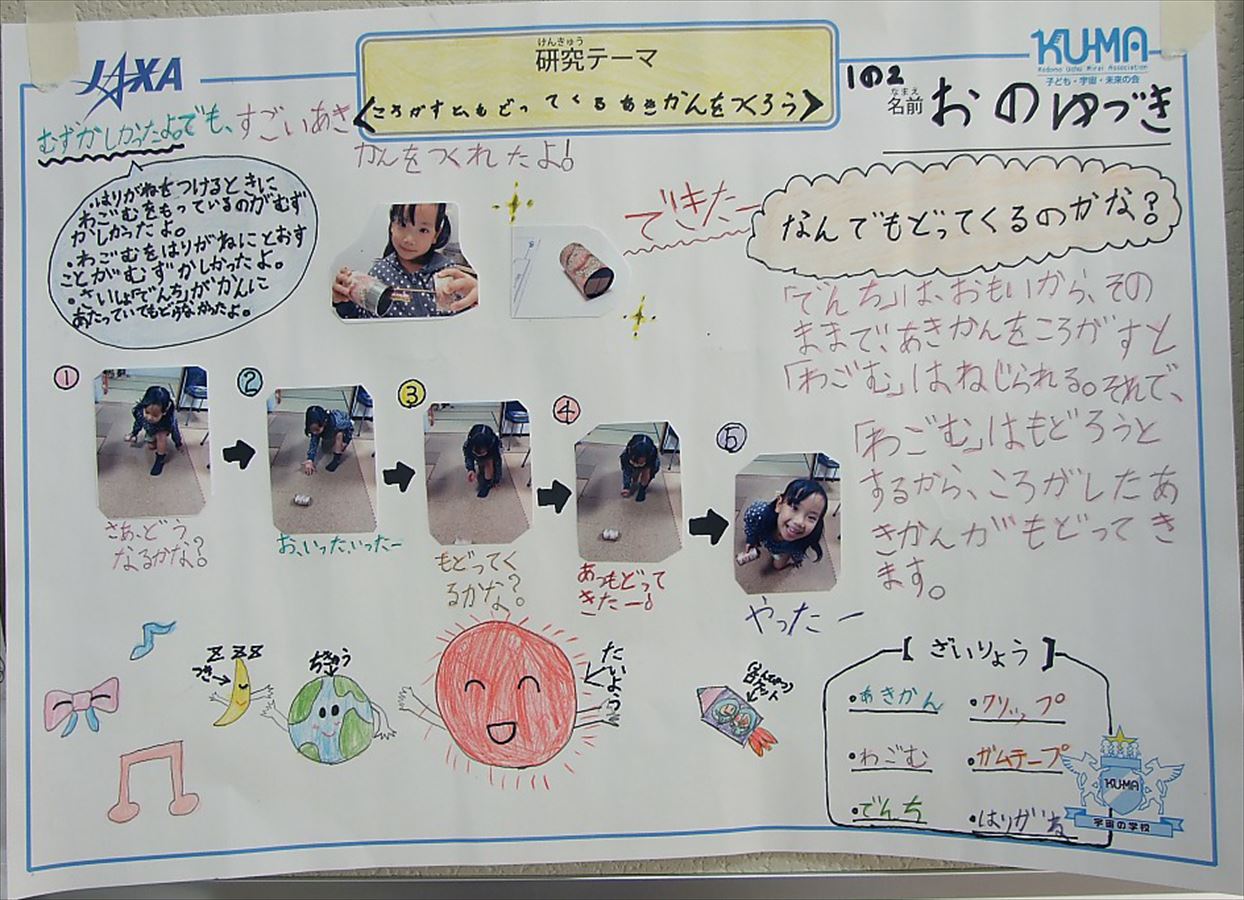 JAXA
けんきゅう
研究テーマ
ころがすと、もどってくるあきかんをつくろう
KU-MA
Kodomo Uchu Mirai Association
子ども・宇宙・未来の会
1の2
なまえ
名前
おのゆづき
むずかしかったよ。でも、すごいあき
かんをつくれたよ!
・はりがねをつけるときに
わごむをもっているのがむず
かしかったよ。
・わごむをはりがねにとおす
ことがむずかしかったよ。
・さいしょ「でんち」がかんに
あたっていてもどらなかったよ。
できたー
なんでもどってくるのかな?
「でんち」は、おもいから、その
ままで、あきかんをころがすと
「わごむ」はねじられる。それで、
「わごむ」はもどろうと
するから、ころがしたあ
きかんがもどってき
ます。
①
さあ、どう、
なるかな?
②
お、いった、いったー
③
もどってく
るかな?
④
あっもどって
きたー!
⑤
やったー
zzz
つき
ちきゅう
たいよう
【ざいりょう】
・あきかん
・クリップ
・わごむ
・ガムテープ
・でんち
・はりがね
KU-MA
宇宙の学校